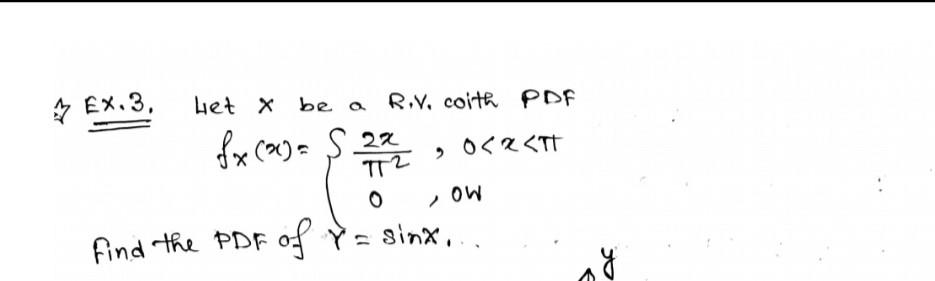 ☆ EX.3. Let X be a R.V. with PDF
fx(x) = { 2x/π², 0<x<π
0, ow
Find the PDF of Y = sinX...
y